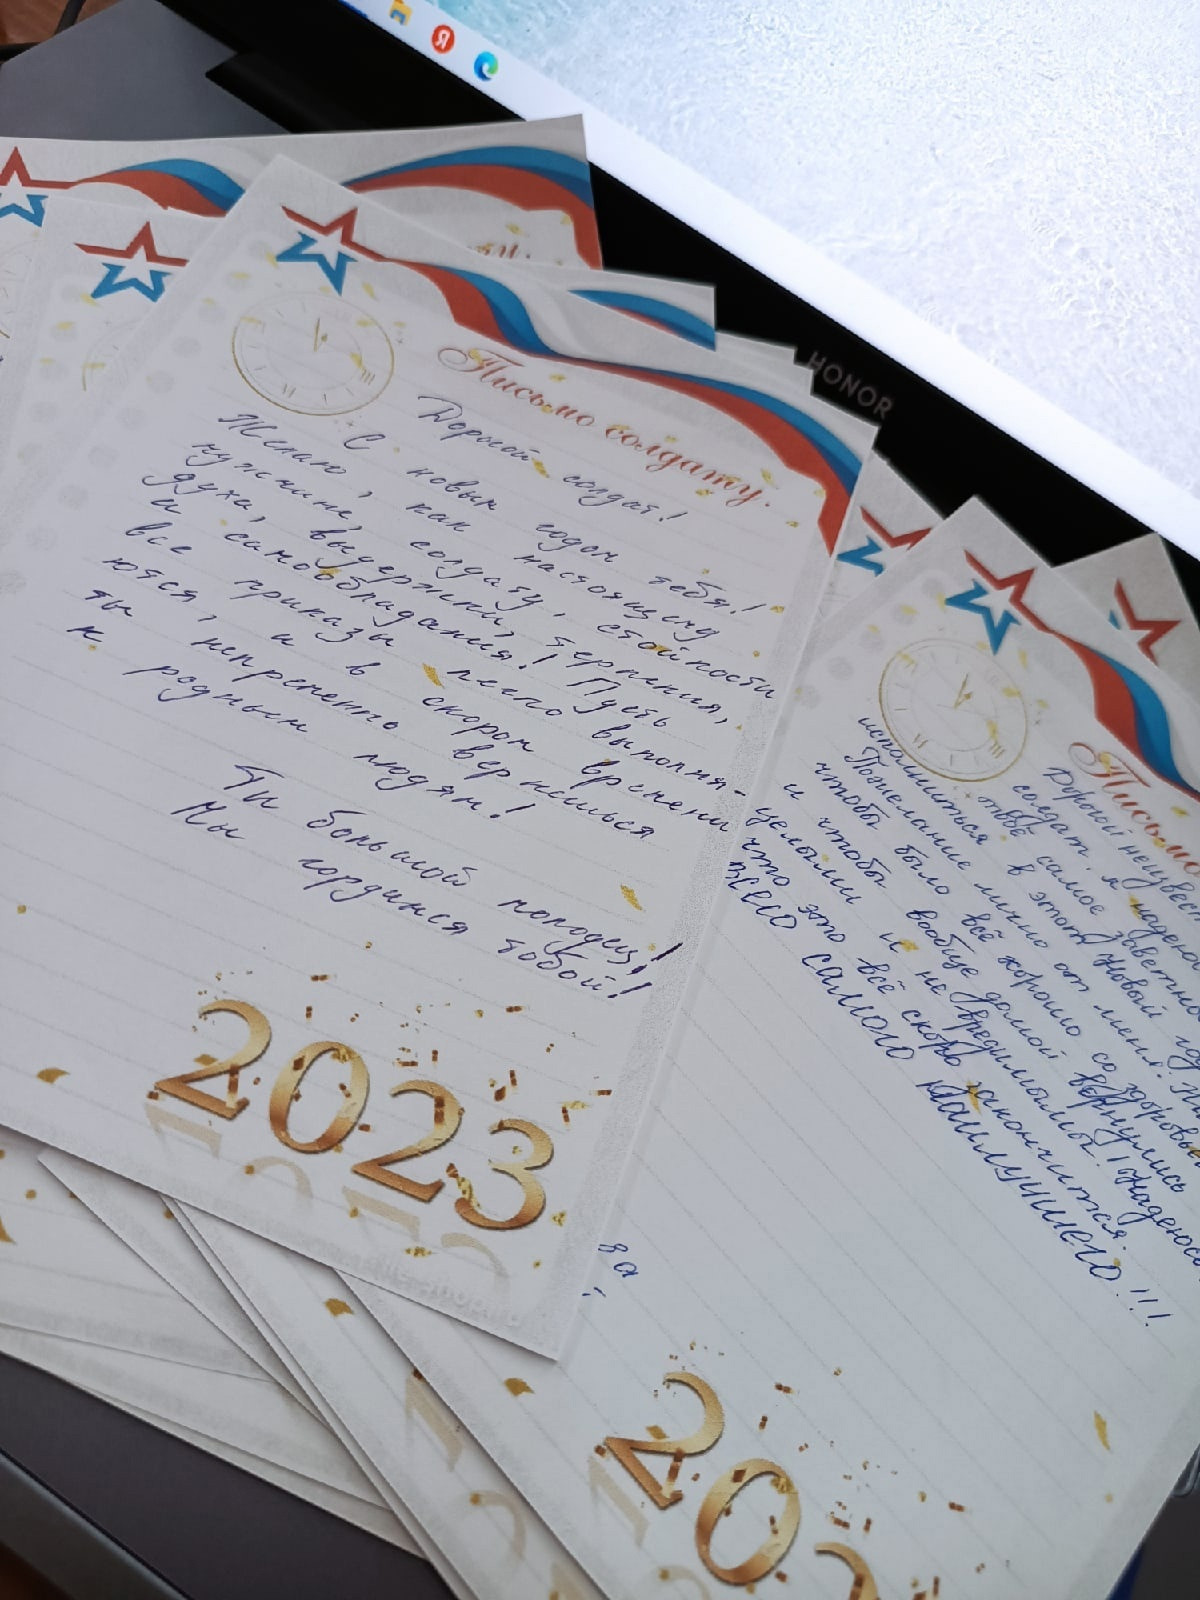 HONOR
Письмо солдату.
Дорогой солдат!
С новым годом тебя!
Желаю, как настоящему
мужчине, солдату, стойкости
духа, выдержки, терпения,
и самообладания! Пусть
все приказы легко выполня-
ются, и в скором времени
ты непременно вернешься
к родным людям!
Ты большой молодец!
Мы гордимся тобой!
2023
Письмо
Дорогой неизвест
солдат, я надеюс
твоё самое заветно
исполниться в этом Новый го
Пожелание лично от меня.
чтобы было всё хорошо со здоровьем
и чтобы вообще домой вернулись
целыми и не вредимыми! Надеюсь
что это всё скоро закончится.
ВСЕГО САМОГО НАИЛУЧШЕГО!!!
за
202